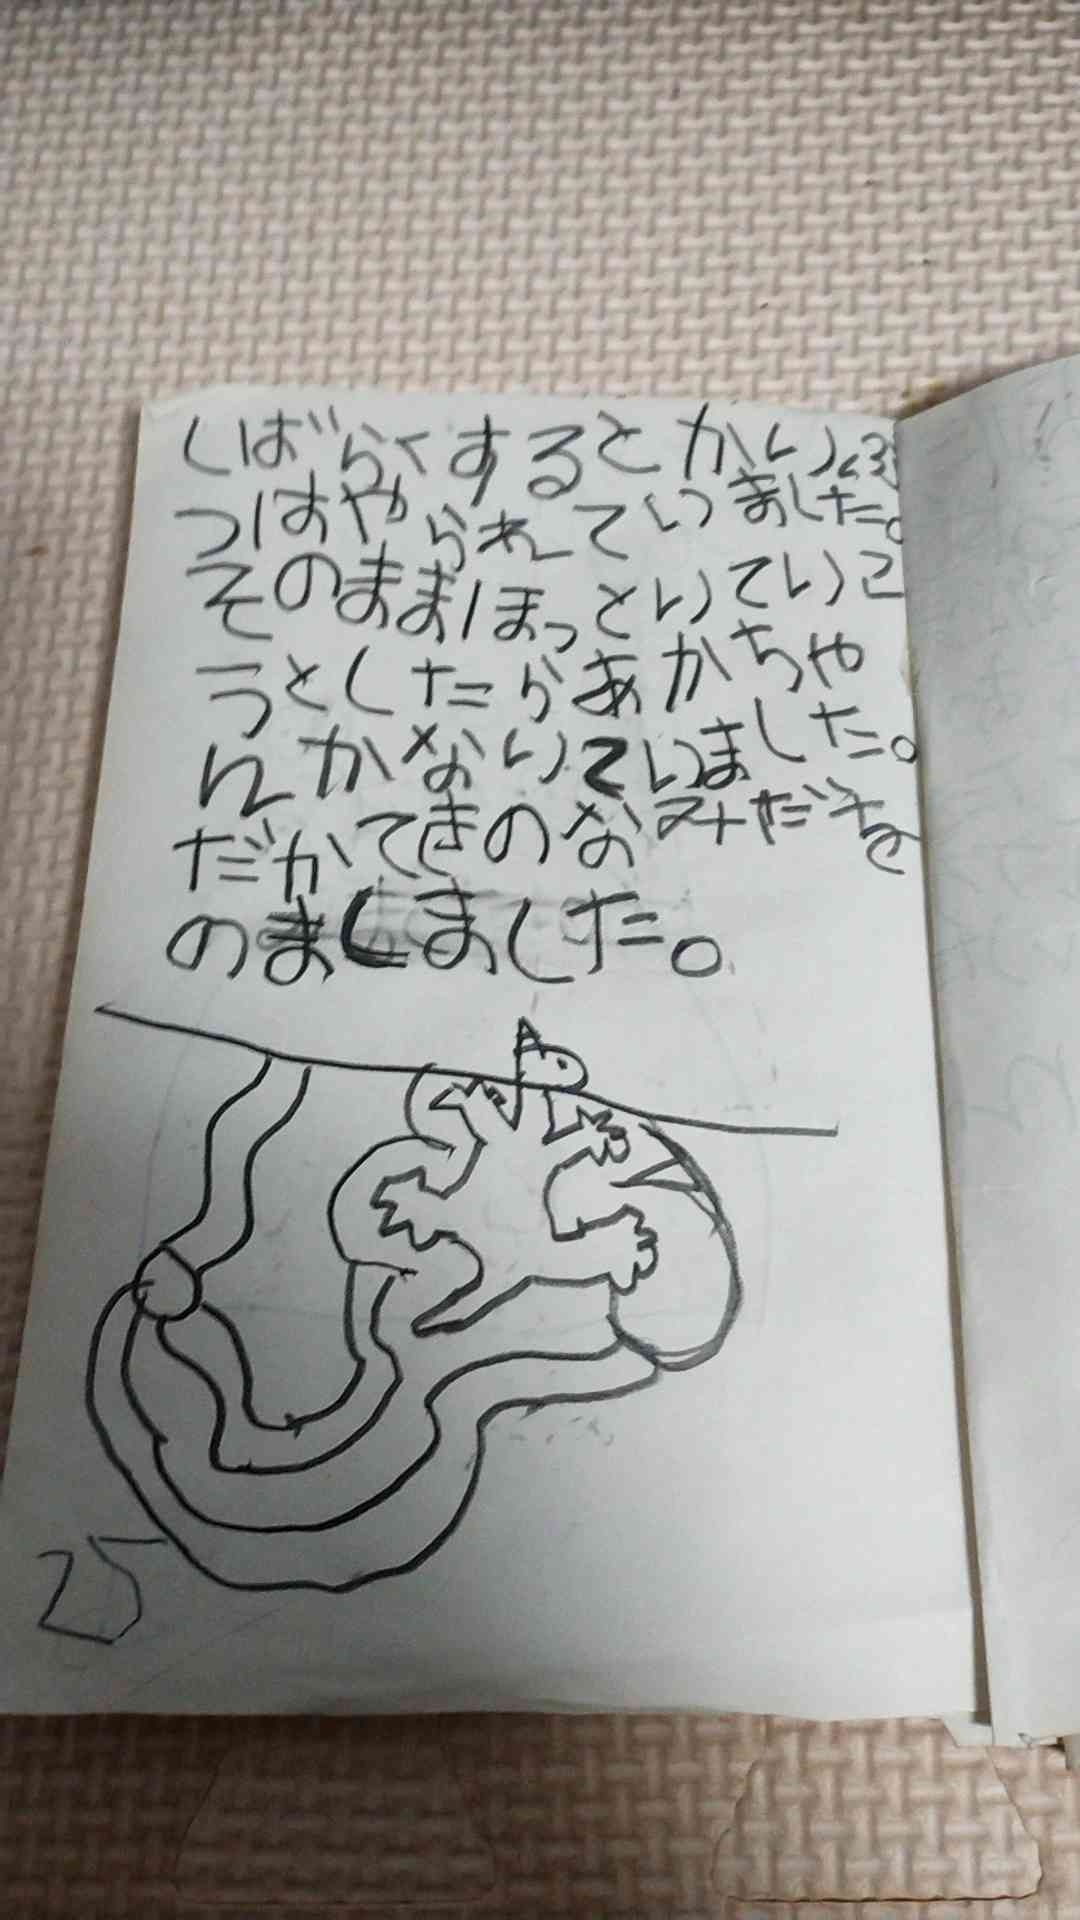 しばらくするとかいぶ
つはやられていました。
そのままほっといていこ
うとしたらあかちゃ
んがないていました。
だがてきのなみだを
のましました。
25